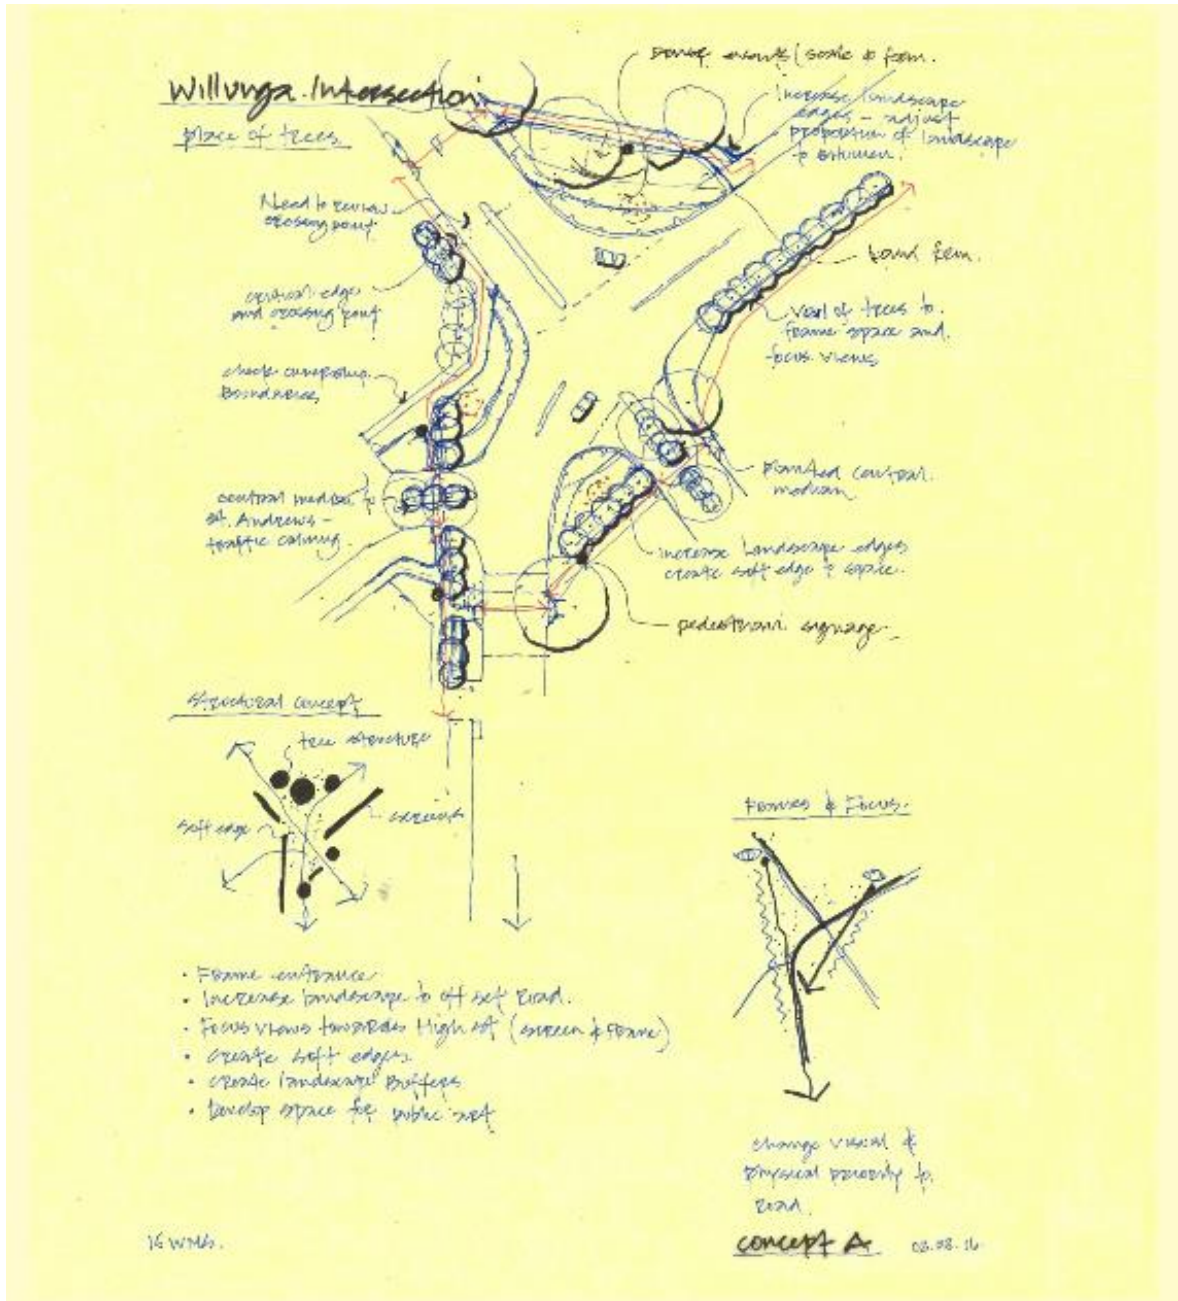 Willunga Intersection
place of trees
events (scale & form.
Increase landscape
edges - adjust
proportion of landscape
to bitumen.
Need to review
crossing point
critical edge
and crossing point
check ownership
Boundaries
central median
st. Andrews -
traffic calming.
Land form.
Veil of trees to
frame space and
focus views
planted central
median
increase landscape edges
create soft edge & space.
pedestrian signage
structural concept
tree structure
soft edge
screens
Frames & Focus.
• Frame entrance
• Increase landscape to off set Road.
• Focus views towards High st (screen & frame)
• create soft edges
• create landscape Buffers
• Develop space for public art
change visual &
physical priority to
road.
16 WMS.
concept A